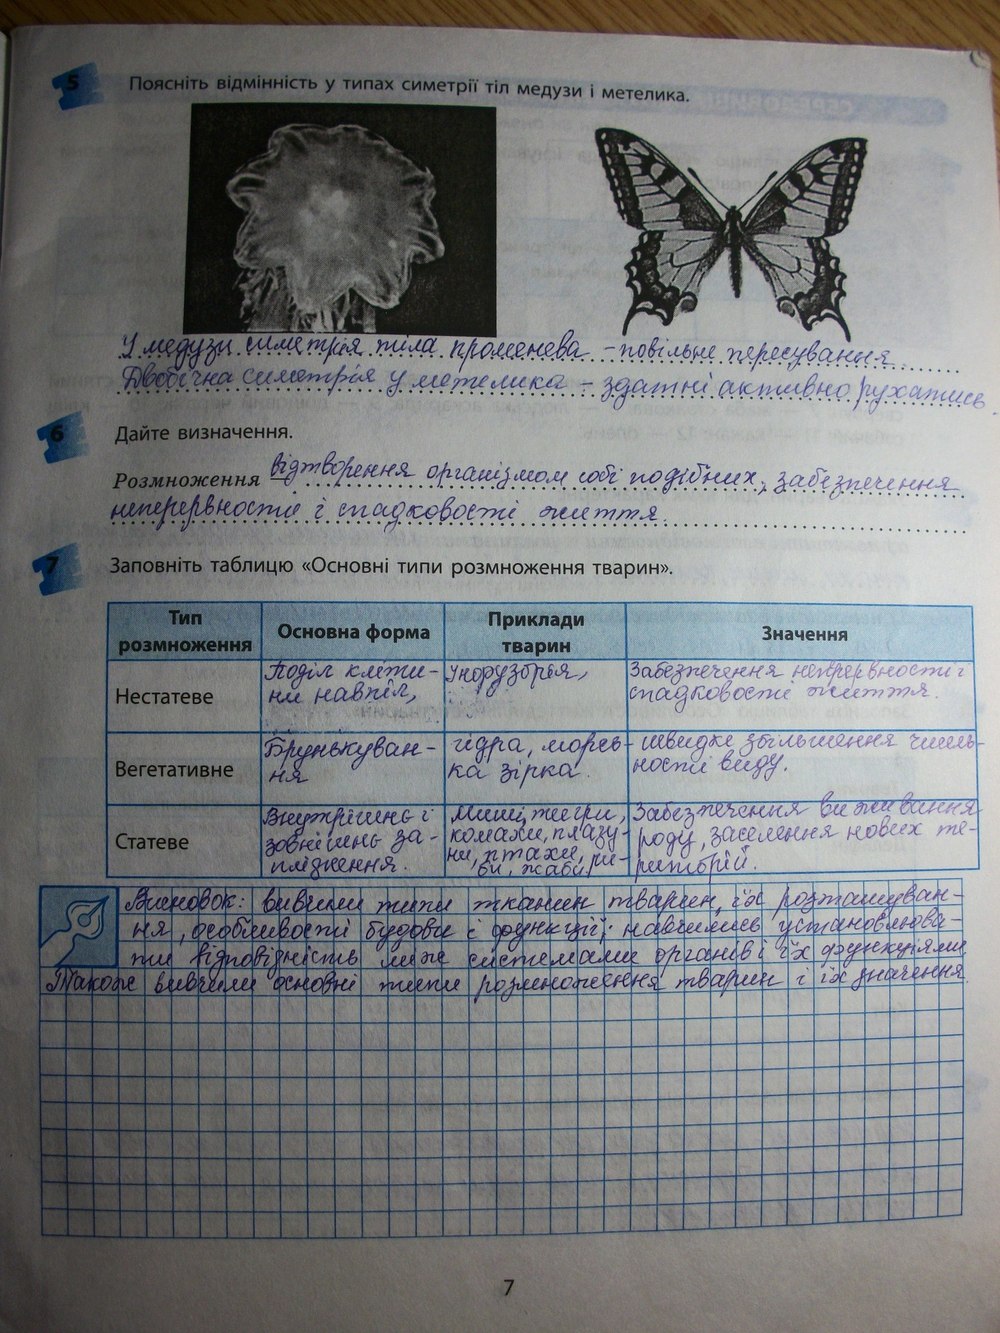 5 Поясніть відмінність у типах симетрії тіл медузи і метелика.
У медузи симетрія тіла променева – повільне пересування.
Двобічна симетрія у метелика – здатні активно рухатись.
6 Дайте визначення.
Розмноження – відтворення організмом собі подібних, забезпечення
неперервности і спадковості життя.
7 Заповніть таблицю «Основні типи розмноження тварин».
Тип розмноження Основна форма Приклади тварин Значення
Нестатеве
Поділ кліти-
ни навпіл,
Інфузорія,
Забезпечення неперервності і
спадковости життя.
Вегетативне
Брунькуван-
ня
гідра, морсь-
ка зірка.
швидке збільшення чисель-
ності виду.
Статеве
Внутрішнь і
зовнішнь за-
пліднення.
Миші, тигри,
комахи, плазу-
ни, птахи, ри-
би, жаби
Забезпечення виживання
роду, заселення нових те-
риторій.
Висновок: вивчили типи тканин тварин, їх розташуван-
ня, особливості будови і функції; навчились установлюва-
ти відповідність між системами органів і їх функціями
Також вивчили основні типи розмноження тварин і їх значення.
7